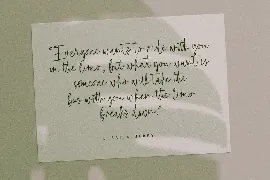 "Everyone wants to ride with you
in the limo, but what you want is
someone who will take the
bus with you when the limo
breaks down."